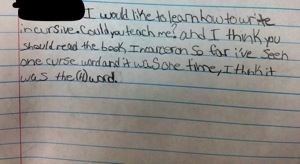 I would like to learn how to write
in cursive. Could you teach me? and I think you
should read the book Incarceron So far i've seen
one curse word and it was one time, I think it
was the word.